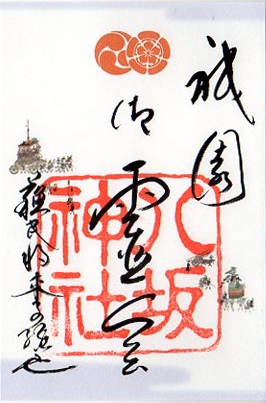 祇園
御靈会
蘇民将来子孫也
八坂
神社